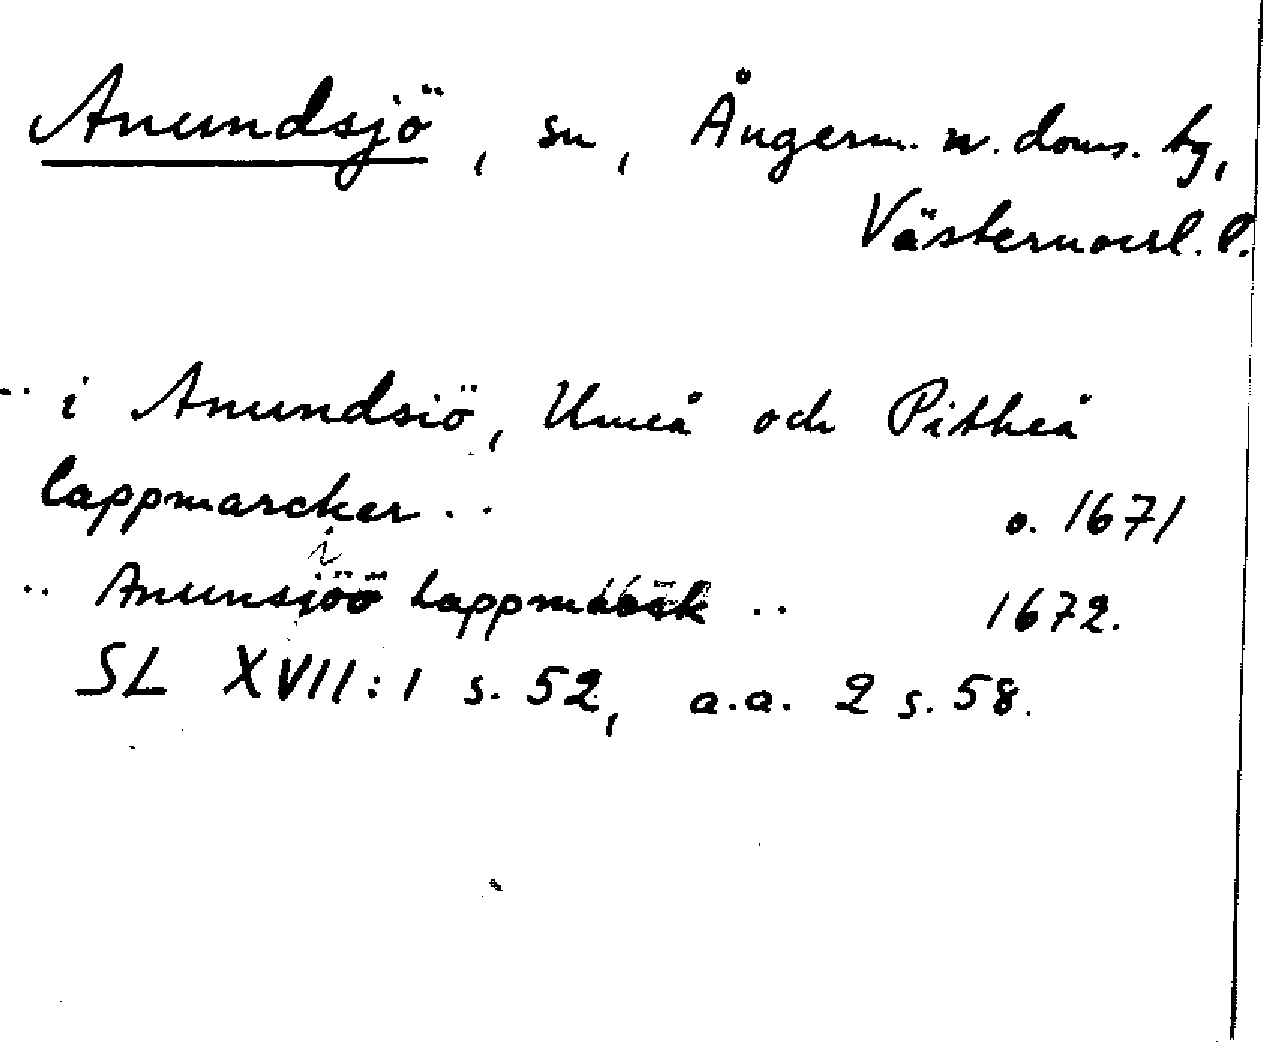 Anundsjö, sn, Ångerm. n. doms. bg,
Västernorrl. l.
.. i Anundsiö, Umeå och Pitheå
lappmarcker .. o. 1671
i
.. Anunsjöö .. 1672.
SL XVII:1 s. 52, a.a. 2 s. 58.